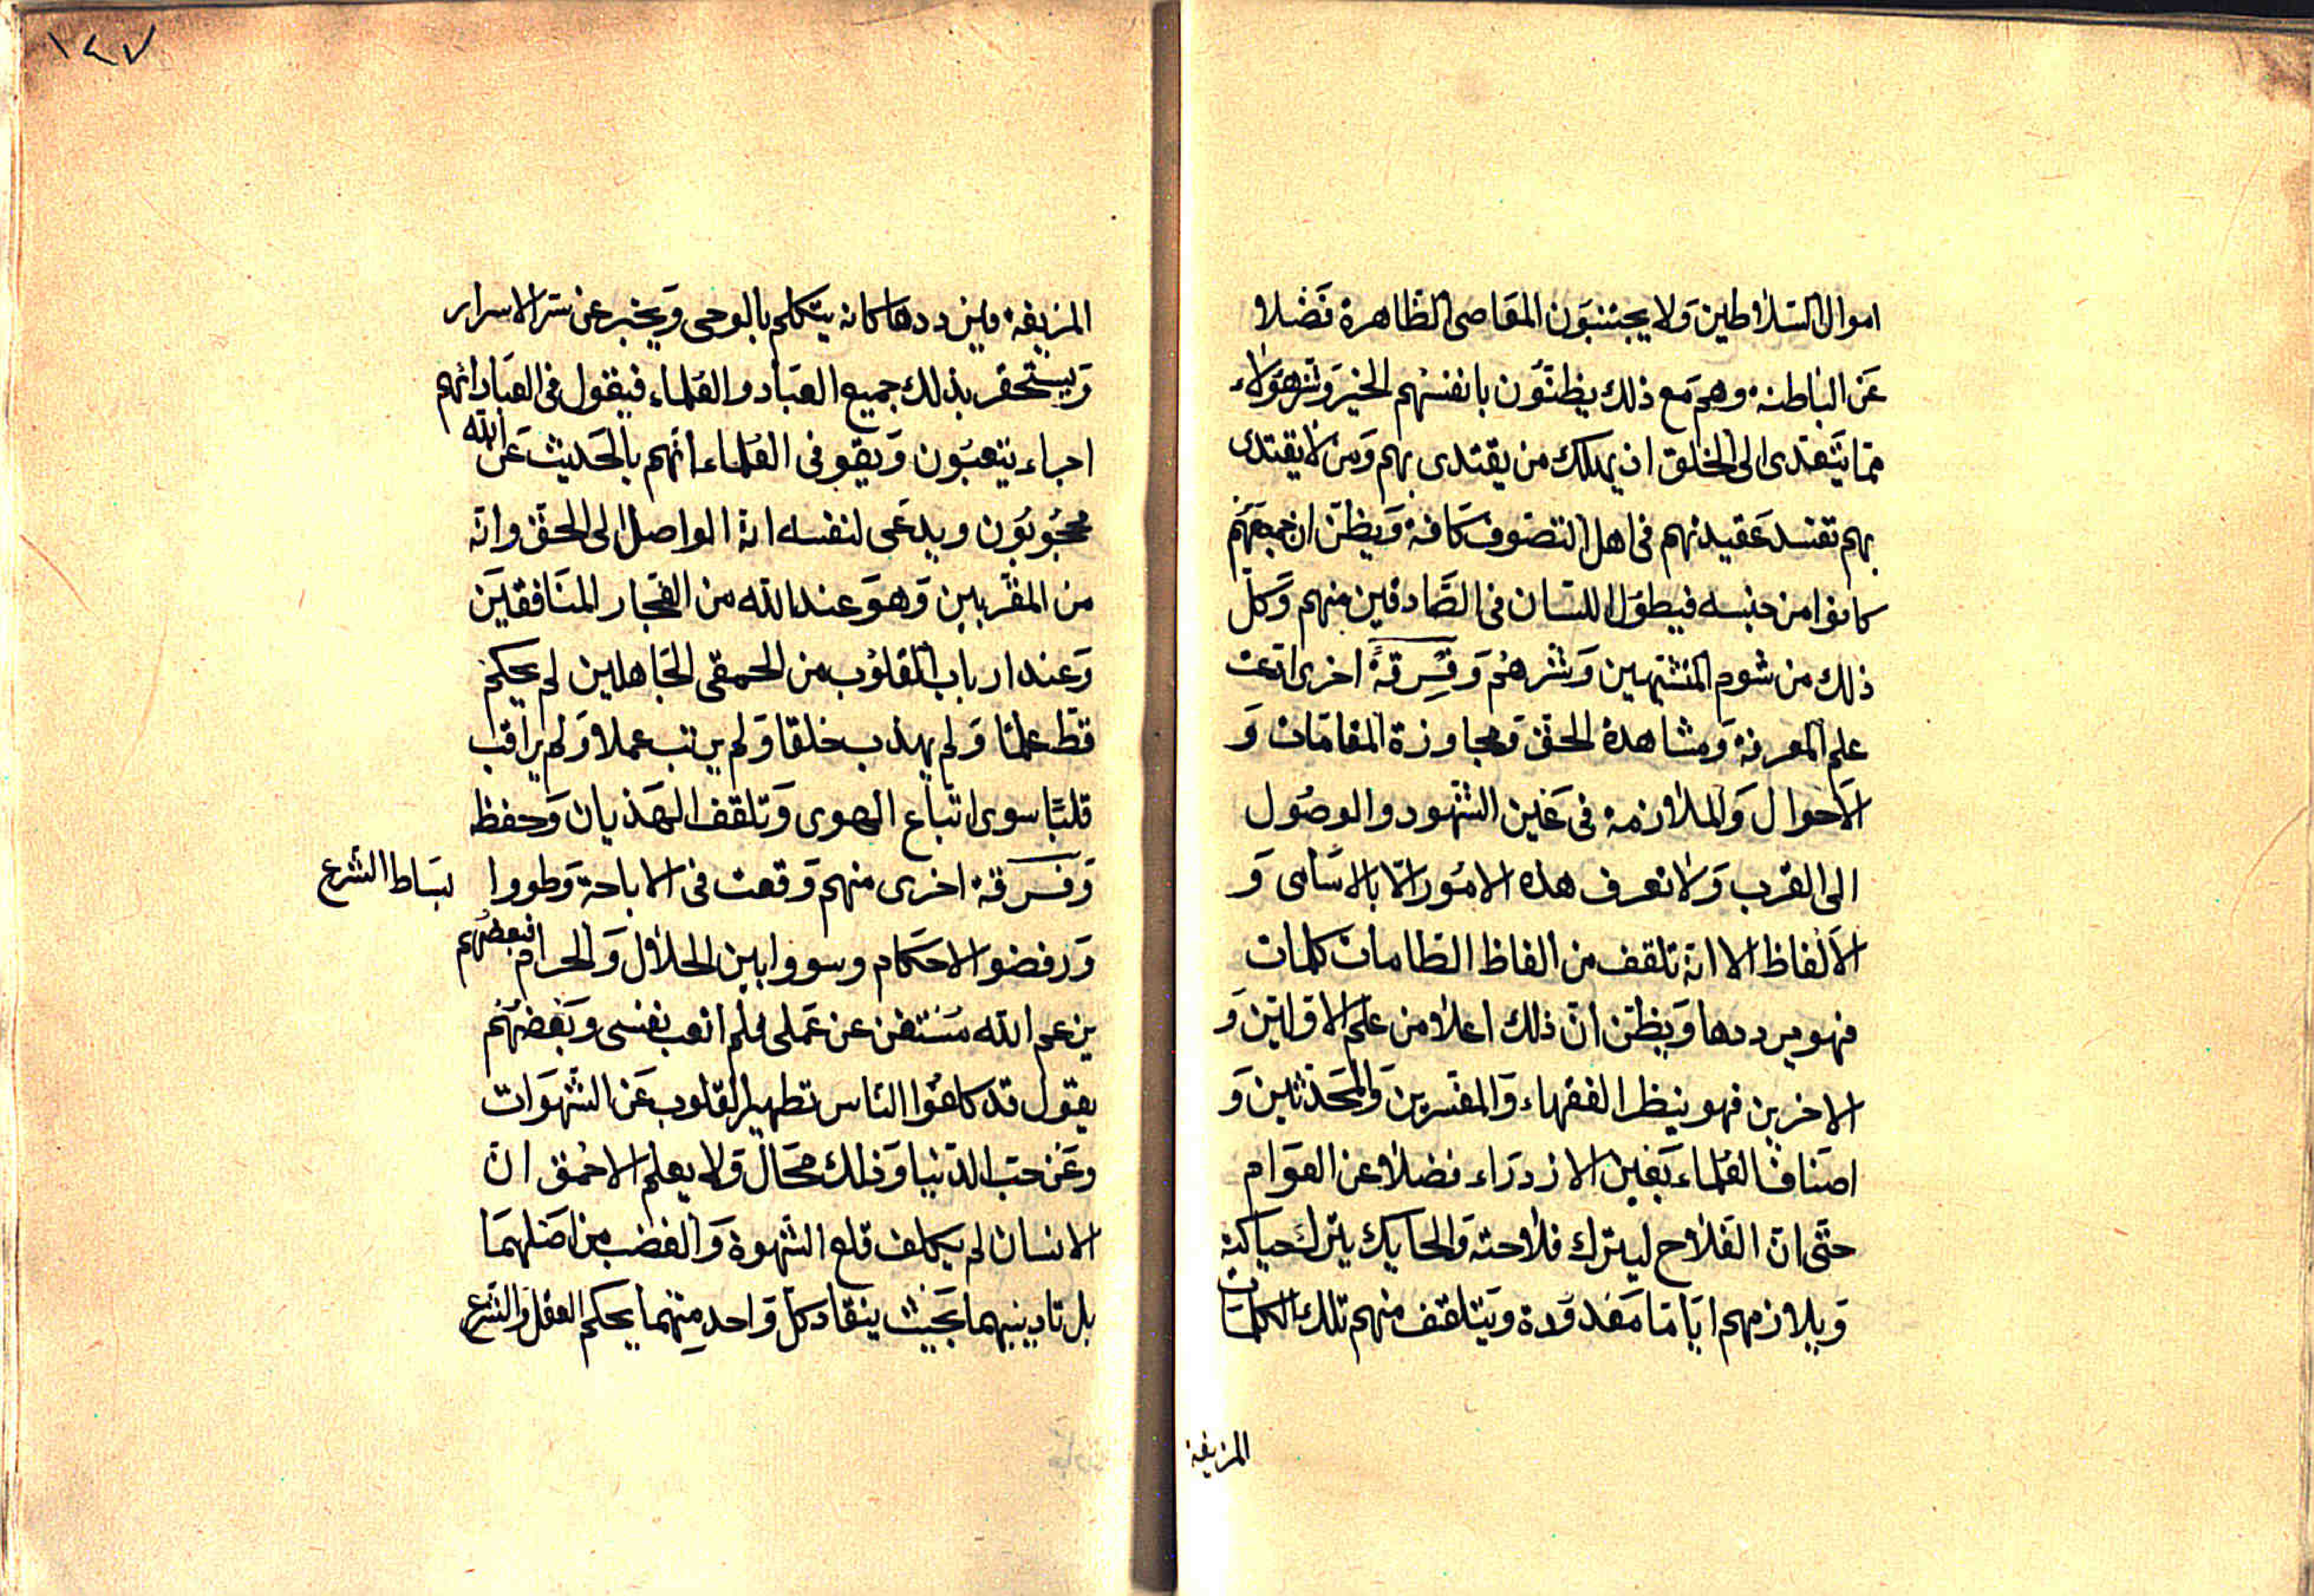 اموال السلاطين ولا يجتنبون المعاصى الظاهرة فضلا
عن الباطنة وهم مع ذلك يظنون بانفسهم الخير وشر هؤلاء
مما يتعدى الى الخلق اذ يهلك من يقتدى بهم ومن لا يقتدى
بهم تفسد عقيدتهم فى اهل التصوف كافة ويظن ان جميعهم
كانوا من جنسه فيطول اللسان فى الصادقين منهم وكل
ذلك من شوم المتشبهين وشرهم وفرقة اخرى ادعت
علم المعرفة ومشاهدة الحق ومجاوزة المقامات و
الاحوال والملازمة فى عين الشهود والوصول
الى القرب ولا تعرف هذه الامور الا بالاسامى و
الالفاظ الا انه تلقف من الفاظ الطامات كلمات
فهو يرددها ويظن ان ذلك اعلا من علم الاولين و
الاخرين فهو ينظر الفقهاء والمفسرين والمحدثين و
اصناف العلماء بعين الازدراء فضلا عن العوام
حتى ان الفلاح ليترك فلاحته والحايك يترك حياكته
ويلازمهم اياما معدودة ويتلقف منهم تلك الكلمات
المزيفة
١٤٧
المزيفة فيرددها كانه يتكلم بالوحى ويخبر عن سر الاسرار
ويستحقر بذلك جميع العباد والعلماء فيقول فى العباد انهم
اجراء يتعبون ويقو فى العلماء انهم بالحديث عن الله
محجوبون ويدعى لنفسه انه الواصل الى الحق وانه
من المقربين وهو عند الله من الفجار المنافقين
وعند ارباب القلوب من الحمقى الجاهلين لم يحكم
قط علما ولم يهذب خلقا ولم يرتب عملا ولم يراقب
قلبا سوى اتباع الهوى وتلقف الهذيان وحفظ
وفرقة اخرى منهم وقعت فى الاباحة وطووا بساط الشرع
ورفضو الاحكام وسووا بين الحلال والحرام فبعضهم
يزعم الله مستغن عن عملى فلم اتعب نفسى وبعضهم
يقول قد كلفوا الناس تطهير القلوب عن الشهوات
وعن حب الدنيا وذلك محال ولا يعلم الاحمق ان
الانسان لم يكلف قلع الشهوة والغضب من اصلهما
بل تاديبهما بحيث ينقاد كل واحد منهما بحكم العقل والشرع